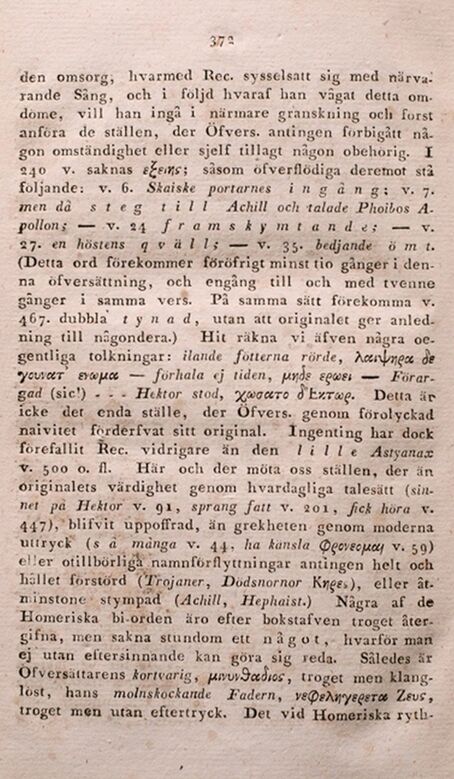 372
den omsorg, hvarmed Rec. sysselsatt sig med närva-
rande Sång, och i följd hvaraf han vågat detta om-
döme, vill han ingå i närmare granskning och först
anföra de ställen, der Öfvers. antingen förbigått nå-
gon omständighet eller sjelf tillagt någon obehörig. I
240 v. saknas εξειης; såsom öfverflödiga deremot stå
följande: v. 6. Skaiske portarnes ingång; v. 7.
men då steg till Achill och talade Phoibos A-
pollon; — v. 24 framskymtande; — v.
27. en höstens qväll; — v. 35. bedjande ömt.
(Detta ord förekommer föröfrigt minst tio gånger i den-
na öfversättning, och engång till och med tvenne
gånger i samma vers. På samma sätt förekomma v.
467. dubbla tynad, utan att originalet ger anled-
ning till någondera.) Hit räkna vi äfven några oe-
gentliga tolkningar: ilande fötterna rörde, λαιψηρα δε
γουνατ' ενωμα — förhala ej tiden, μηδε ερωει — Förar-
gad (sic!) - - - Hektor stod, χωσατο δ'Εκτωρ. Detta är
icke det enda ställe, der Öfvers. genom förolyckad
naivitet förderfvat sitt original. Ingenting har dock
förefallit Rec. vidrigare än den lille Astyanax
v. 500 o. fl. Här och der möta oss ställen, der än
originalets värdighet genom hvardagliga talesätt (sin-
net på Hektor v. 91, sprang fatt v. 201, fick höra v.
447), blifvit uppoffrad, än grekheten genom moderna
uttryck (så många v. 44, ha känsla φρονεομαι v. 59)
eller otillbörliga namnförflyttningar antingen helt och
hållet förstörd (Trojaner, Dödsnornor Κηρες), eller åt-
minstone stympad (Achill, Hephaist.) Några af de
Homeriska bi-orden äro efter bokstafven troget åter-
gifna, men sakna stundom ett något, hvarför man
ej utan eftersinnande kan göra sig reda. Således är
Öfversättarens kortvarig, μινυνθαδιος, troget men klang-
löst, hans molnskockande Fadern, νεφεληγερετα Ζευς,
troget men utan eftertryck. Det vid Homeriska ryth-